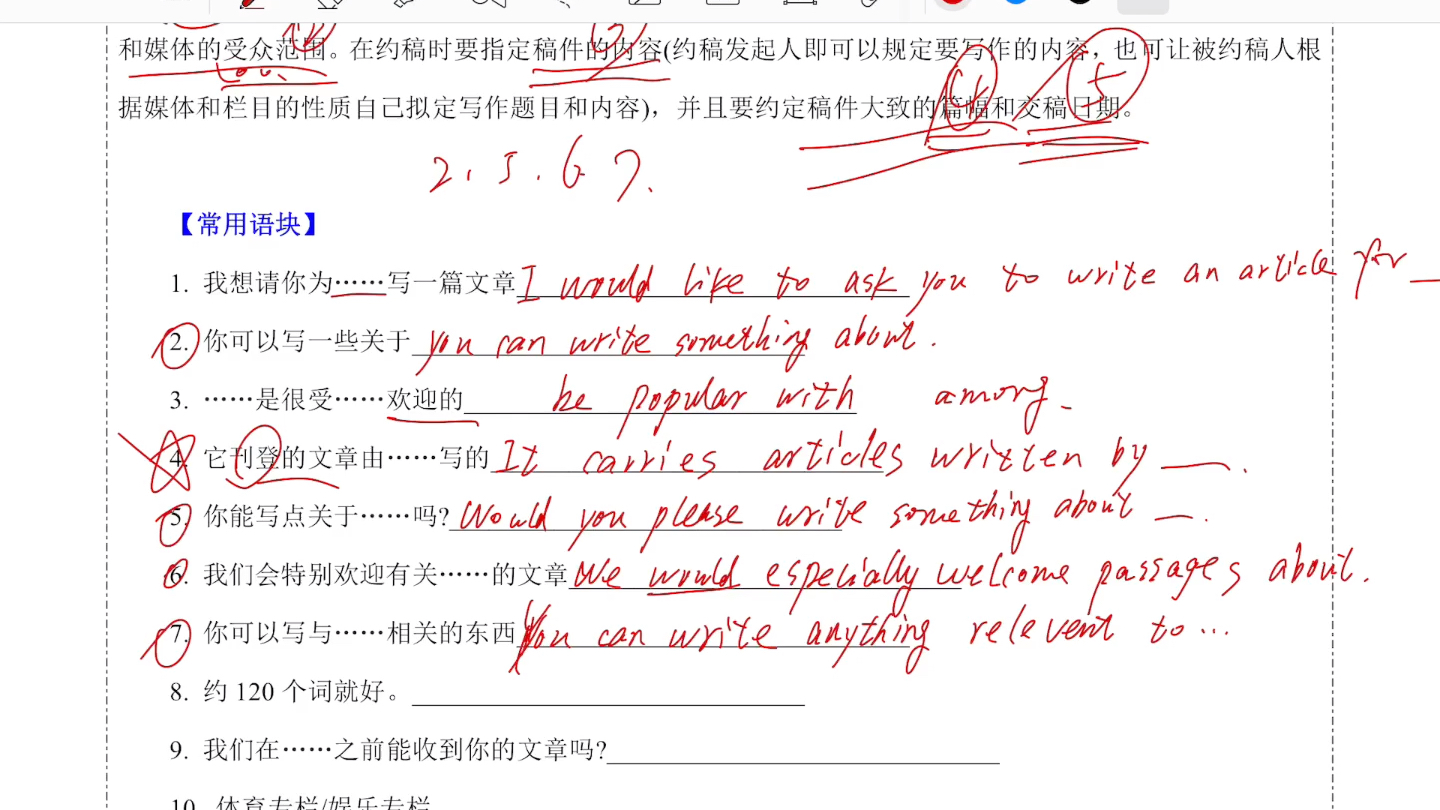 和媒体的受众范围。在约稿时要指定稿件的内容(约稿发起人即可以规定要写作的内容，也可让被约稿人根
据媒体和栏目的性质自己拟定写作题目和内容)，并且要约定稿件大致的篇幅和交稿日期。
2. 5. 6 7.
【常用语块】
1. 我想请你为……写一篇文章 I would like to ask you to write an article for __
2. 你可以写一些关于 you can write something about.
3. ……是很受……欢迎的 be popular with among
4. 它刊登的文章由……写的 It carries articles written by __.
5. 你能写点关于……吗? Would you please write something about __.
6. 我们会特别欢迎有关……的文章 We would especially welcome passages about.
7. 你可以写与……相关的东西 You can write anything relevent to …
8. 约 120 个词就好。
9. 我们在……之前能收到你的文章吗?
10. 体育专栏/娱乐专栏